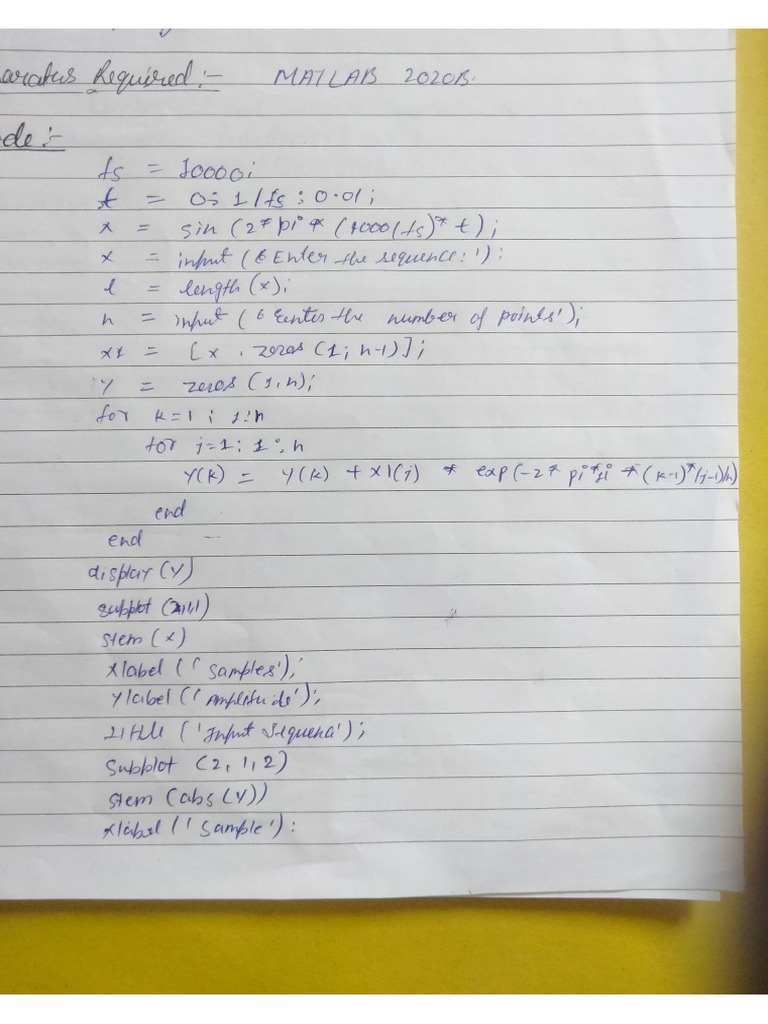 Required :- MATLAB 2020B.
de :-
fs = 10000;
t = 0 : 1/fs : 0.01 ;
x = sin (2* pi * (1000/fs)* t) ;
x = input ( 6 Enter the sequence : ') :
l = length (x);
n = input ( 6 Eenter the number of points');
x1 = [ x . zeros (1 ; n-1) ] ;
y = zeros (1,n);
for k=1 ; 1:n
for j=1 : 1 : n
y(k) = y(k) + x1(j) * exp(-2* pi * *(k-1)*(j-1)/n)
end
end
display (y)
subplot (2,1,1)
stem (x)
xlabel (' samples');
ylabel (' Amplitude');
('Input );
subplot (2, 1, 2)
stem (abs (y))
xlabel (' sample') :